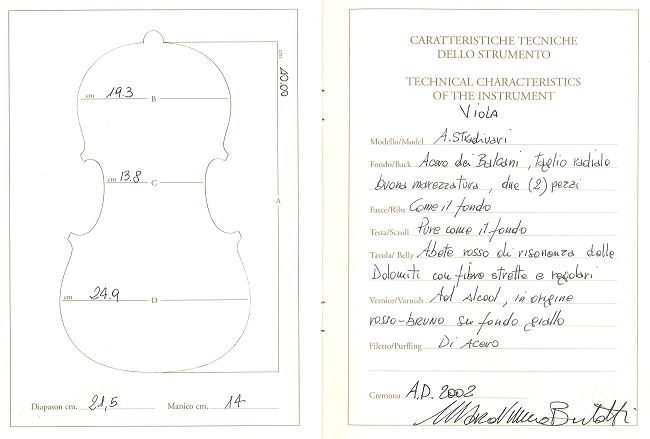 cm 40.00
cm 19.3 B
cm 13.8 C
A
cm 24.9 D
Diapason cm. 21,5 Manico cm. 14
CARATTERISTICHE TECNICHE
DELLO STRUMENTO
TECHNICAL CHARACTERISTICS
OF THE INSTRUMENT
Viola
Modello/Model A. Stradivari
Fondo/Back Acero dei Balcani, taglio radiale
buona marezzatura, due (2) pezzi
Fasce/Ribs Come il fondo
Testa/Scroll Pure come il fondo
Tavola/ Belly Abete rosso di risonanza delle
Dolomiti con fibra stretta e regolari
Vernice/Varnish Ad Alcool, in origine
rosso-bruno su fondo giallo
Filetto/Purfling Di Acero
Cremona A.D. 2002